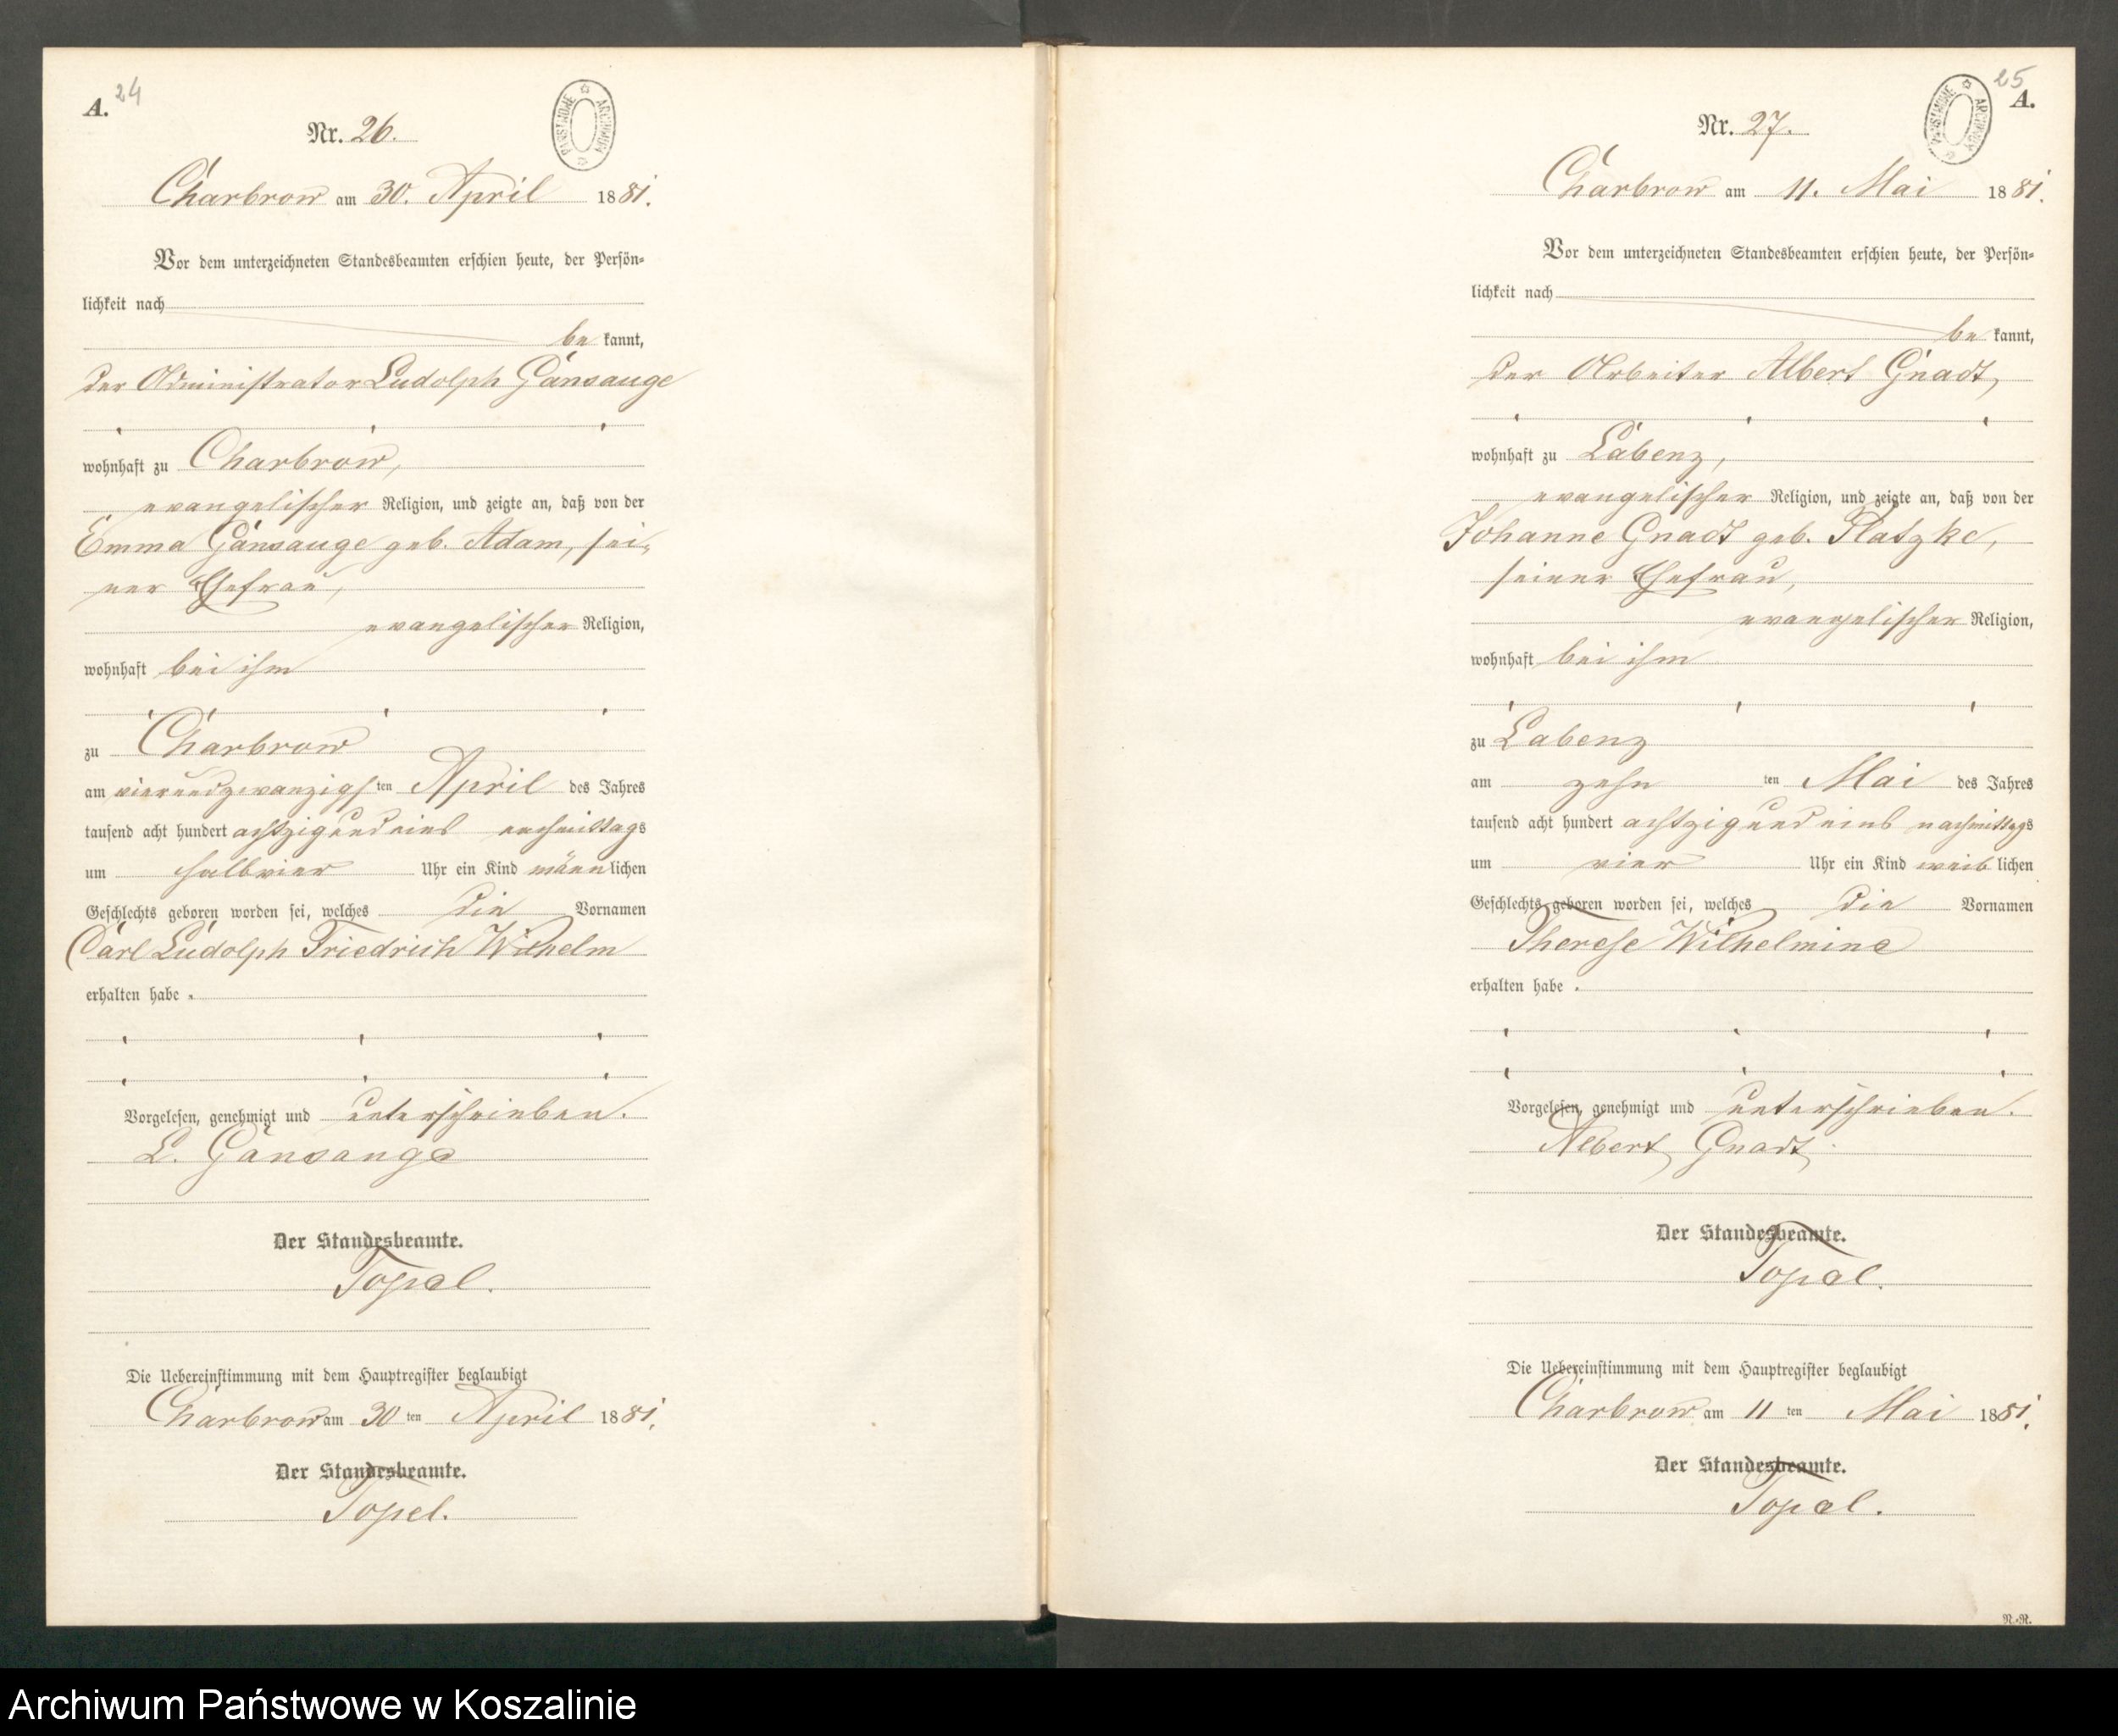 24
A.
Nr. 26.
PAŃSTWOWE ARCHIWUM
Charbrow am 30. April 1881.
Vor dem unterzeichneten Standesbeamten erschien heute, der Persön-
lichkeit nach
be kannt,
der Administrator Ludolph Gänsauge
wohnhaft zu Charbrow,
evangelischer Religion, und zeigte an, daß von der
Emma Gänsauge geb. Adam, sei-
ner Ehefrau,
evangelischer Religion,
wohnhaft bei ihm
zu Charbrow
am vierundzwanzigsten April des Jahres
tausend acht hundert achtzig und eins nachmittags
um halbvier Uhr ein Kind männlichen
Geschlechts geboren worden sei, welches die Vornamen
Carl Ludolph Friedrich Wilhelm
erhalten habe.
Vorgelesen, genehmigt und unterschrieben.
L. Gänsauge
Der Standesbeamte.
Topel.
Die Uebereinstimmung mit dem Hauptregister beglaubigt
Charbrow am 30ten April 1881.
Der Standesbeamte.
Topel.
25
A.
Nr. 27.
PAŃSTWOWE ARCHIWUM
Charbrow am 11. Mai 1881.
Vor dem unterzeichneten Standesbeamten erschien heute, der Persön-
lichkeit nach
be kannt,
der Arbeiter Albert Gnadt,
wohnhaft zu Labenz,
evangelischer Religion, und zeigte an, daß von der
Johanne Gnadt geb. Platzke,
seiner Ehefrau,
evangelischer Religion,
wohnhaft bei ihm
zu Labenz
am zehn ten Mai des Jahres
tausend acht hundert achtzig und eins nachmittags
um vier Uhr ein Kind weiblichen
Geschlechts geboren worden sei, welches die Vornamen
Therese Wilhelmine
erhalten habe.
Vorgelesen, genehmigt und unterschrieben.
Albert Gnadt
Der Standesbeamte.
Topel.
Die Uebereinstimmung mit dem Hauptregister beglaubigt
Charbrow am 11ten Mai 1881.
Der Standesbeamte.
Topel.
N.-R.
Archiwum Państwowe w Koszalinie